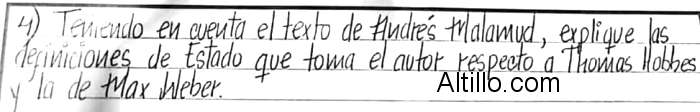 4) Teniendo en cuenta el texto de Andrés Malamud, explique las
definiciones de Estado que toma el autor respecto a Thomas Hobbes
y la de Max Weber.
Altillo.com